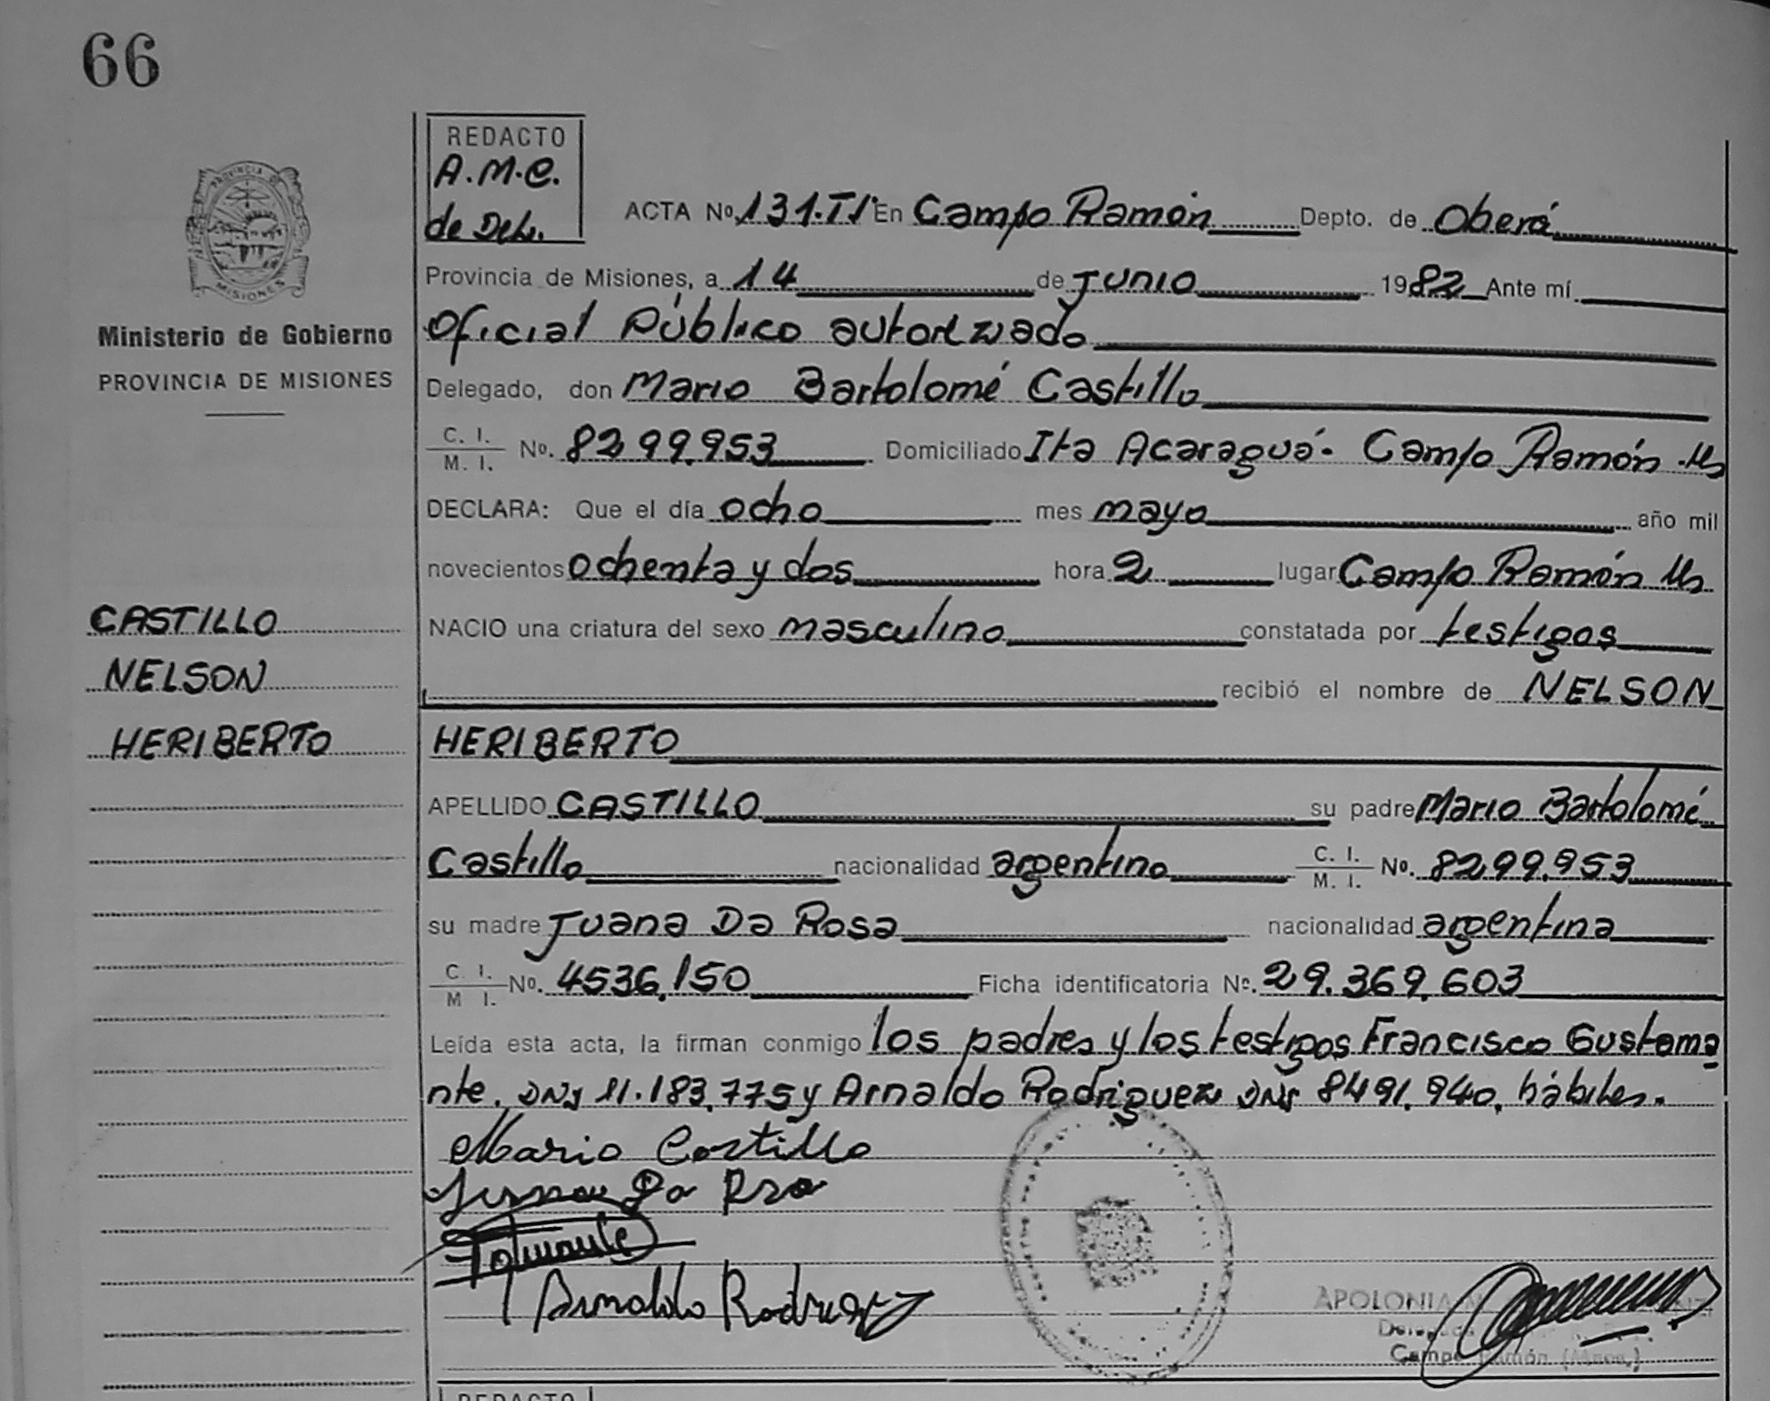 66
REDACTO
A.M.C.
de Del.
ACTA Nº 131.TI En Campo Ramón Depto. de Oberá
Provincia de Misiones, a 14 de Junio 1982 Ante mí
Oficial Público autorizado
Delegado, don Mario Bartolomé Castillo
C. I. / M. I. No. 8299.953 Domiciliado Ita Acaraguá - Campo Ramón - Ms
DECLARA: Que el día ocho mes mayo año mil
novecientos ochenta y dos hora 2 lugar Campo Ramón Ms
NACIO una criatura del sexo masculino constatada por testigos
recibió el nombre de NELSON
HERIBERTO
APELLIDO CASTILLO su padre Mario Bartolomé
Castillo nacionalidad argentino C. I. / M. I. No. 8299.953
su madre Juana Da Rosa nacionalidad argentina
C. I. / M I. No. 4536.150 Ficha identificatoria Nº. 29.369.603
Leída esta acta, la firman conmigo los padres y los testigos Francisco Gustama
nte. DNI 11.183.775 y Arnaldo Rodriguez DNI 8491.940, hábiles.
Mario Castillo
Juana Da Rosa
Arnaldo Rodriguez
APOLONIA M
Campo Ramón (Mnes.)
REDACTO
PROVINCIA DE
MISIONES
Ministerio de Gobierno
PROVINCIA DE MISIONES
CASTILLO
NELSON
HERIBERTO